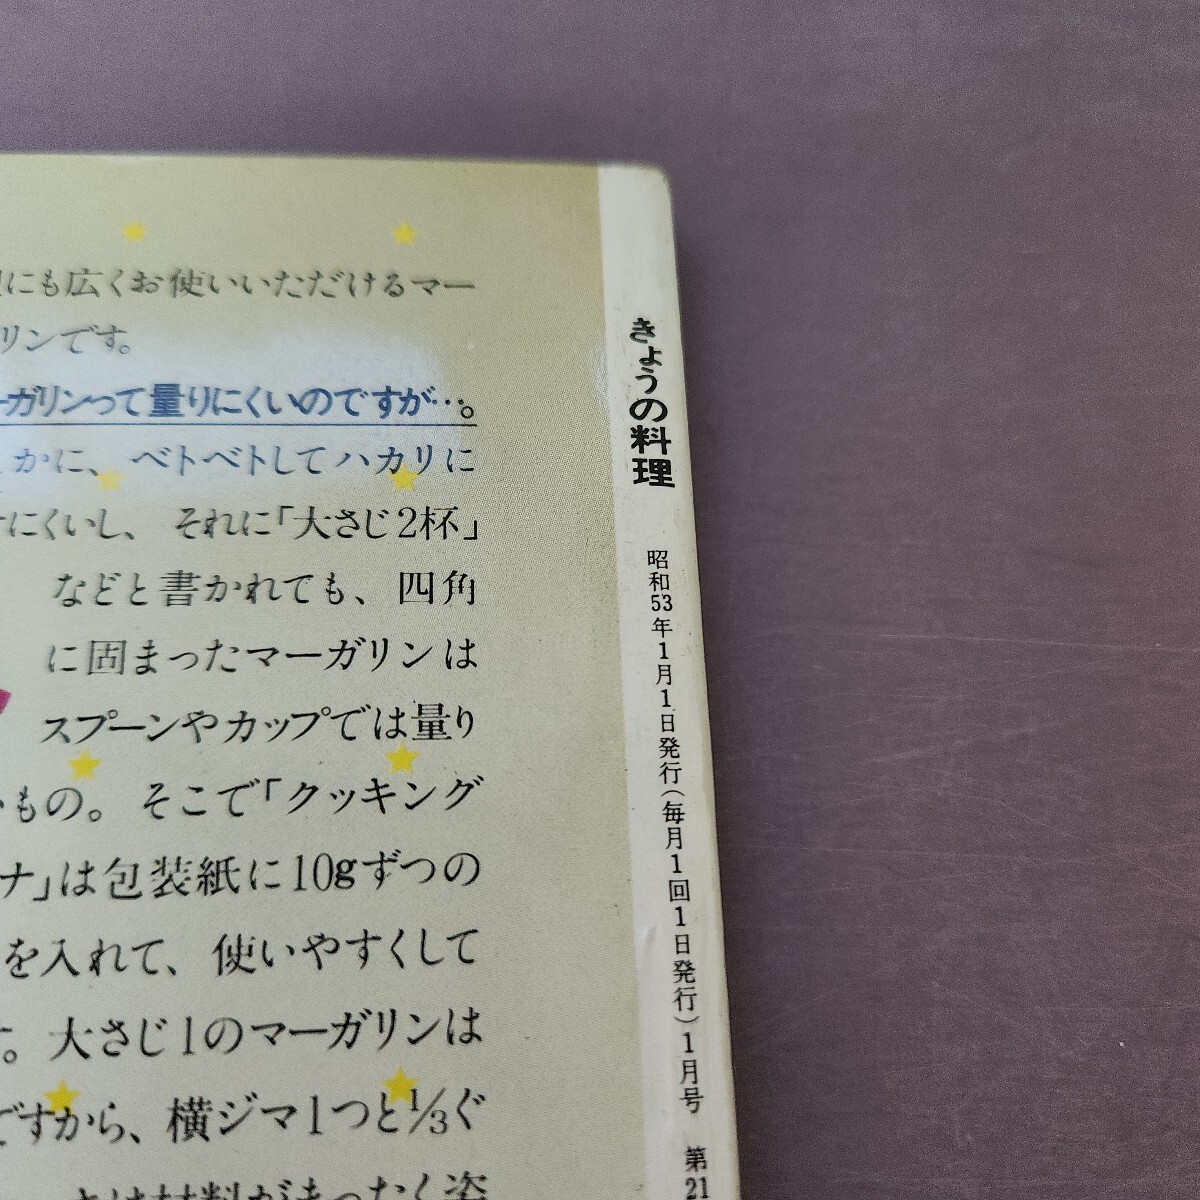 にも広くお使いいただけるマー
リンです。
ーガリンって量りにくいのですが…。
かに、ベトベトしてハカリに
にくいし、それに「大さじ2杯」
などと書かれても、四角
に固まったマーガリンは
スプーンやカップでは量り
もの。そこで「クッキング
ナ」は包装紙に10gずつの
を入れて、使いやすくして
。大さじ1のマーガリンは
ですから、横ジマ1つと1/3ぐ
材料があったなく姿
きょうの料理
昭和53年1月1日発行(毎月1回1日発行)1月号 第21